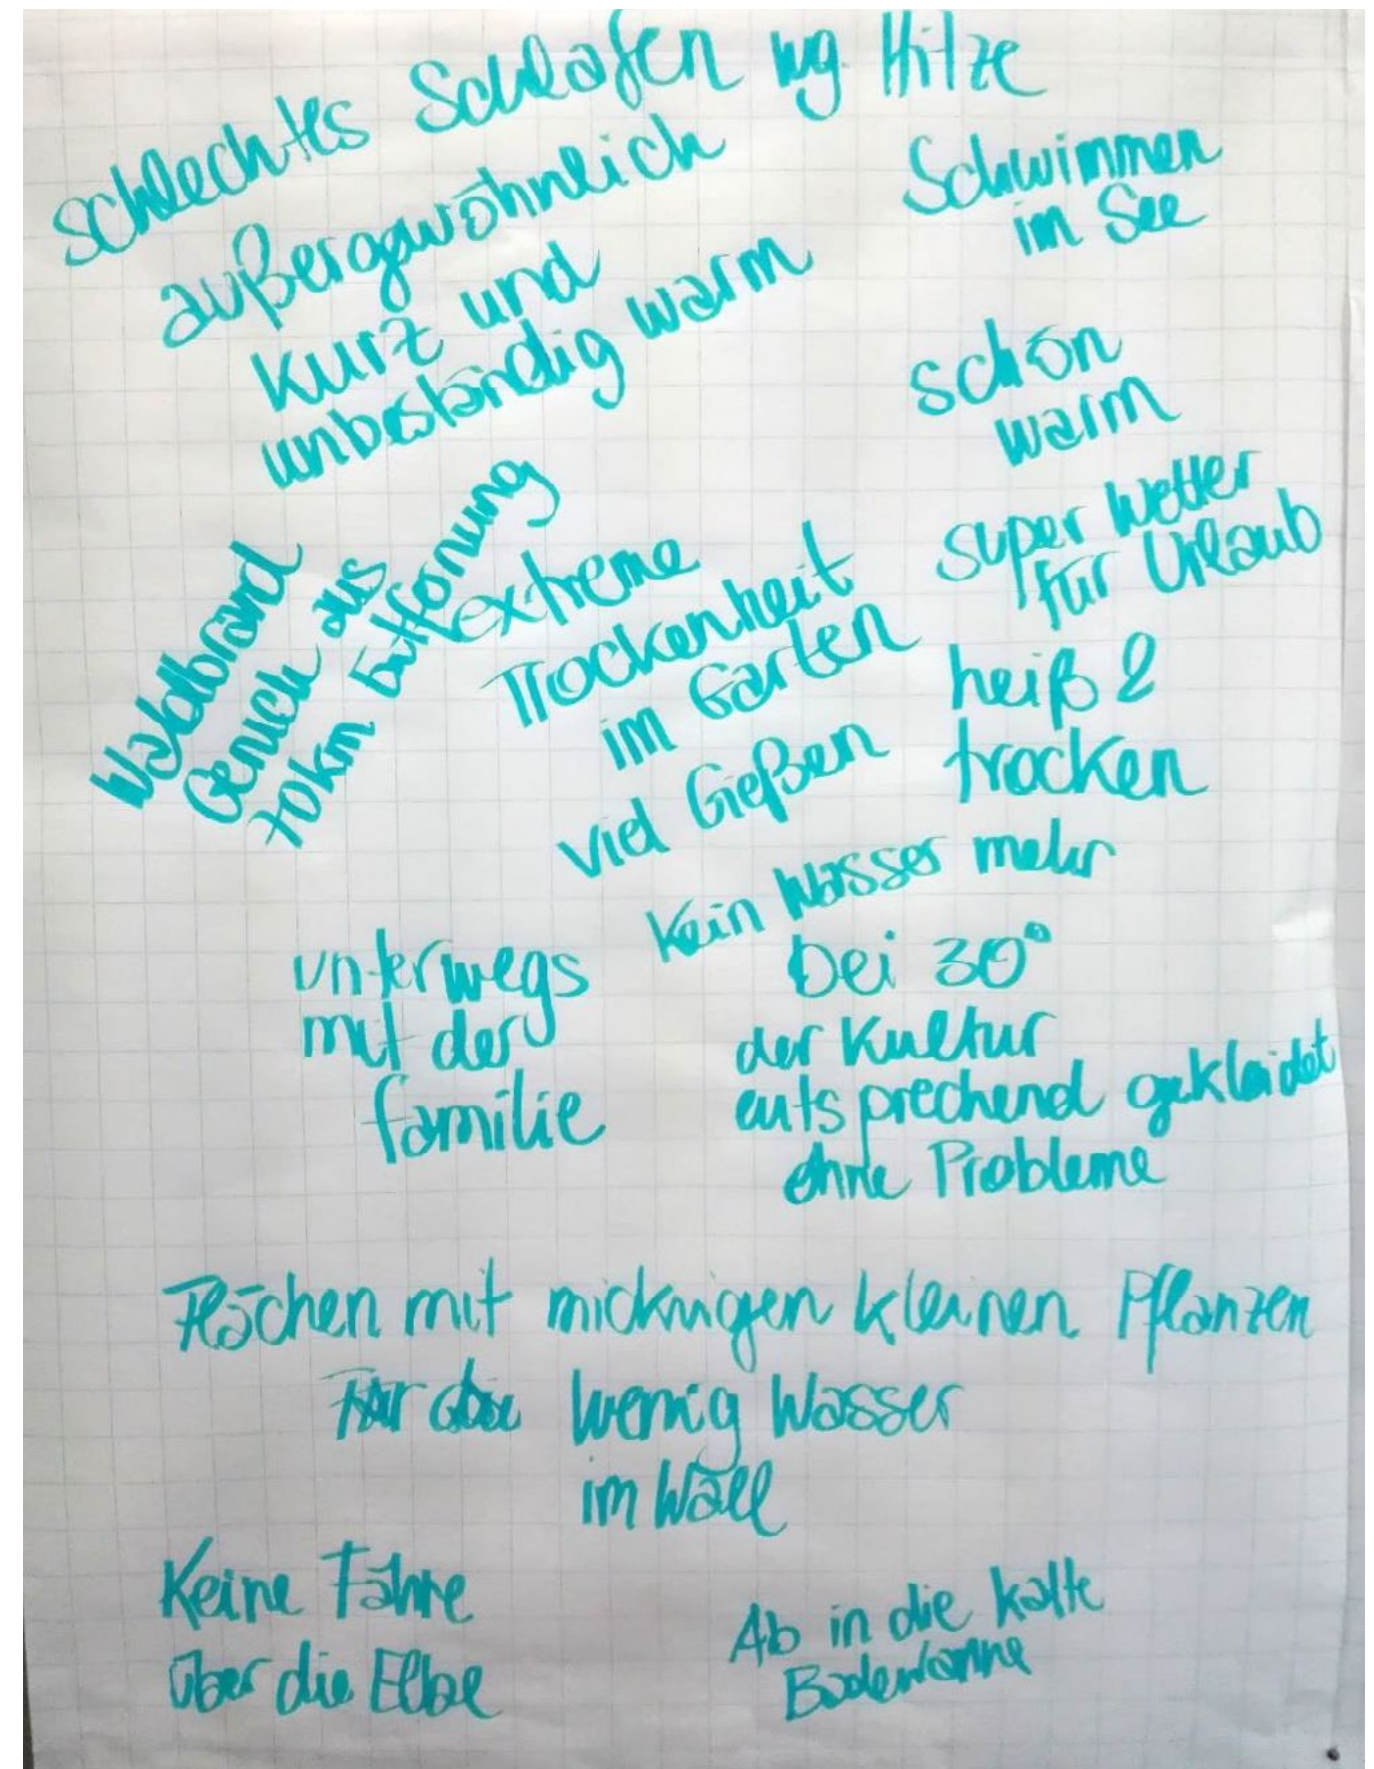 Schlechtes Schlafen wg. Hitze
außergewöhnlich
kurz und
unbeständig warm
Schwimmen
im See
schön
warm
super Wetter
für Urlaub
Waldbrand
Geruch aus
70km Entfernung
extreme
Trockenheit
im Garten
viel Gießen
heiß &
trocken
Kein Wasser mehr
unterwegs
mit der
familie
bei 30°
der Kultur
entsprechend gekleidet
ohne Probleme
Flächen mit mickrigen kleinen Pflanzen
wenig Wasser
im Wall
Keine Fähre
über die Elbe
Ab in die kalte
Badewanne